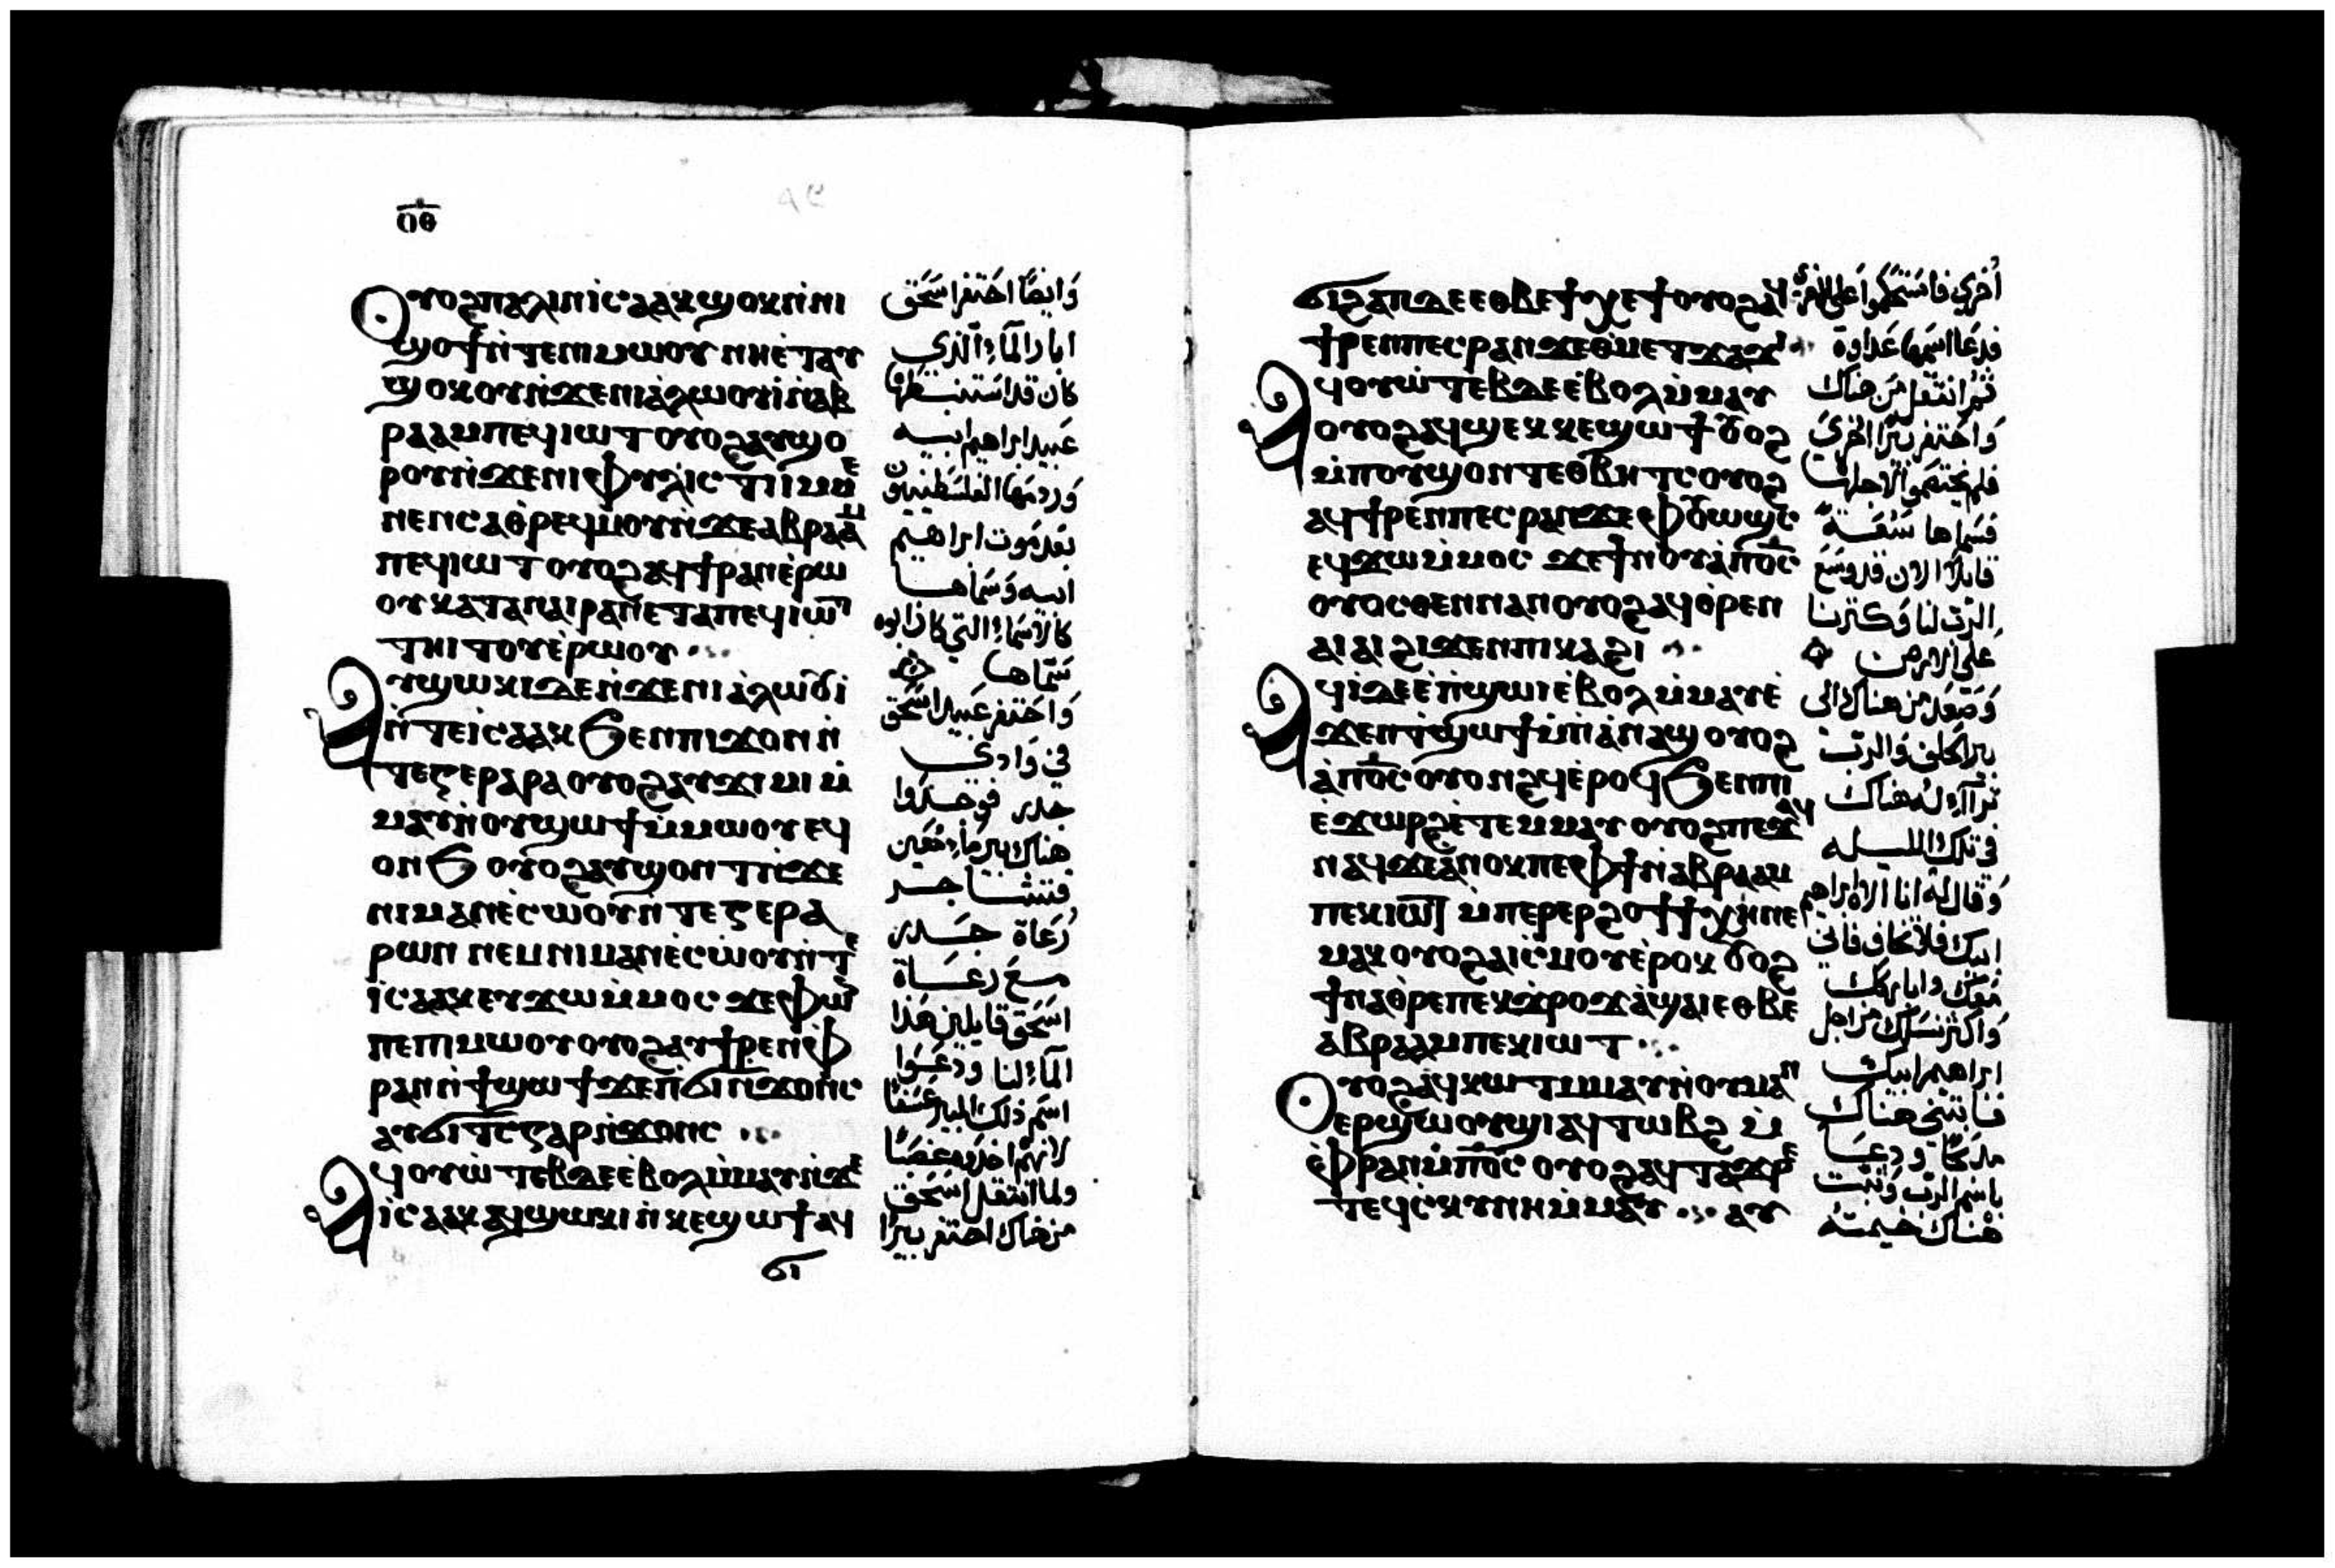 ⲟ̅ⲑ̅
Ⲟⲩⲟϩ ⲡⲁⲗⲓⲛ ⲓⲥⲁⲁⲕ ϣⲟⲕ ⲛ̀ⲛⲓ
ϣⲟϯ ⲛ̀ⲧⲉⲡⲓⲙⲱⲟⲩ ⲛⲏⲉ̀ⲧⲁⲩ
ϣⲟⲕⲟⲩ ⲛ̀ϫⲉⲛⲓⲁ̀ⲗⲱⲟⲩⲓ̀ ⲛ̀ⲁⲃ
ⲣⲁⲁⲙ ⲡⲉϥⲓⲱⲧ ⲟⲩⲟϩ ⲁⲩϣⲟ
ⲣⲟⲩ ⲛ̀ϫⲉⲛⲓⲫⲩⲗⲓⲥⲧⲓⲓⲙ ⲙⲉ
ⲛⲉⲛⲥⲁⲑⲣⲉϥⲙⲟⲩ ⲛ̀ϫⲉⲁⲃⲣⲁⲁⲙ
ⲡⲉϥⲓⲱⲧ ⲟⲩⲟϩ ⲁϥϯⲣⲁⲛ ⲉ̀ⲣⲱ
ⲟⲩ ⲕⲁⲧⲁ ⲡⲁⲓⲣⲁⲛ ⲉ̀ⲧⲁⲡⲉϥⲓⲱⲧ
ⲧⲏⲓⲧⲟⲩ ⲉ̀ⲣⲱⲟⲩ
Ⲁⲩϣⲱⲕⲓ ⲇⲉ ⲛ̀ϫⲉⲛⲓⲁ̀ⲗⲱⲟⲩⲓ
ⲛ̀ⲧⲉⲓⲥⲁⲁⲕ ϧⲉⲛⲡⲓϫⲟⲛ ⲛ̀
ⲧⲉⲅⲉⲣⲁⲣⲁ ⲟⲩⲟϩ ⲁⲩϫⲓⲙⲓ ⲙ̀
ⲙⲁⲩ ⲛ̀ⲟⲩϣⲱϯ ⲙ̀ⲙⲱⲟⲩ ⲉϥ
ⲟⲛϧ ⲟⲩⲟϩ ⲁⲩϣⲟⲛⲧ ⲛ̀ϫⲉ
ⲛⲓⲙⲁⲛⲉ̀ⲥⲱⲟⲩ ⲛ̀ⲧⲉⲅⲉⲣⲁ
ⲣⲱⲛ ⲛⲉⲙ ⲛⲓⲙⲁⲛⲉ̀ⲥⲱⲟⲩ ⲛ̀ⲧⲉ
ⲓⲥⲁⲁⲕ ⲉⲩϫⲱ ⲙ̀ⲙⲟⲥ ϫⲉ ⲫⲱⲛ
ⲡⲉ ⲡⲓⲙⲱⲟⲩ ⲟⲩⲟϩ ⲁⲩϯⲣⲉⲛ ⲫ
ⲣⲁⲛ ⲛ̀ϯϣⲱϯ ϫⲉ ⲡ̀ϭⲓⲛϫⲟⲛⲥ
ⲁⲩϭⲓⲧⲥ ⲅⲁⲣ ⲛ̀ϫⲟⲛⲥ
Ⲁϥⲟⲩⲱ̀ⲧⲉⲃ ⲇⲉ ⲉ̀ⲃⲟⲗ ⲙ̀ⲙⲁⲩ ⲛ̀ϫⲉ
ⲓⲥⲁⲁⲕ ⲁϥϣⲱⲕⲓ ⲛ̀ⲕⲉϣⲱϯ ⲁϥ
ϭⲓ
وَايضًا احَتفر اسَحَق
ابار المآءِ الذي
كان قد استنبطها
عَبيد ابراهيم ابيه
وَردمَها الفلسَطينيون
بَعد مَوت ابراهيم
ابيه وَسَمّاها
كالاسَماءِ التي كان ابوه
سَمّاها
وَاحَتفر عَبيد اسَحَق
في وَادي
جدرر فوجدوا
هناك بير مآءٍ مَعَين
فتشاجر
رُعَاة جدرر
مع رعاة
اسَحَق قايلين هَذا
المآءِ لنا ودعَوا
اسَم ذلك البير غصبًا
لانهم اخذوه غصبًا
ولما انتقل اسَحَق
من هناك احتفر بيرًا
ϭⲓϩⲁⲡ ⲇⲉ ⲉⲑⲃⲉ ϯⲭⲉϯ ⲟⲩⲟϩ ⲁϥ
ϯⲣⲉⲛ ⲡⲉⲥⲣⲁⲛ ϫⲉ ⲑⲙⲉⲧϫⲁϫⲓ
Ⲁϥⲟⲩⲱ̀ⲧⲉⲃ ⲇⲉ ⲉ̀ⲃⲟⲗ ⲙ̀ⲙⲁⲩ
ⲟⲩⲟϩ ⲁϥϣⲉⲕ ⲕⲉϣⲱϯ ⲟⲩⲟϩ
ⲙ̀ⲡⲟⲩϣⲟⲛⲧ ⲉⲑⲃⲏⲧⲥ ⲟⲩⲟϩ
ⲁϥϯⲣⲉⲛ ⲡⲉⲥⲣⲁⲛ ϫⲉ ⲫⲟⲩⲱϣⲥ
ⲉϥϫⲱ ⲙ̀ⲙⲟⲥ ϫⲉ ϯⲛⲟⲩ ⲁ̀ⲡⲟ̅ⲥ̅
ⲟⲩⲟⲥⲑⲉⲛ ⲛⲁⲛ ⲟⲩⲟϩ ⲁϥⲑ̀ⲣⲉⲛ
ⲁⲓⲁⲓ ϩⲓϫⲉⲛ ⲡⲓⲕⲁϩⲓ
Ⲁϥⲓ̀ ⲇⲉ ⲉ̀ⲡ̀ϣⲱⲓ ⲉ̀ⲃⲟⲗ ⲙ̀ⲙⲁⲩ ⲉ̀
ϫⲉⲛ ϯϣⲱϯ ⲙ̀ⲡ̀ⲁ̀ⲛⲁϣ ⲟⲩⲟϩ
ⲁ̀ⲡⲟ̅ⲥ̅ ⲟⲩⲟⲛϩϥ ⲉ̀ⲣⲟϥ ϧⲉⲛⲡⲓ
ⲉ̀ϫⲱⲣϩ ⲉ̀ⲧⲉⲙⲙⲁⲩ ⲟⲩⲟϩ ⲡⲉϫⲁϥ
ⲛⲁϥ ϫⲉ ⲁ̀ⲛⲟⲕ ⲡⲉ ⲫϯ ⲛ̀ⲁⲃⲣⲁⲁⲙ
ⲡⲉⲕⲓⲱⲧ ⲙ̀ⲡⲉⲣⲉⲣϩⲟϯ ϯⲭⲏ ⲛⲉ
ⲙⲁⲕ ⲟⲩⲟϩ ⲁⲓⲥ̀ⲙⲟⲩ ⲉ̀ⲣⲟⲕ ⲟⲩⲟϩ
ϯⲛⲁⲑ̀ⲣⲉ ⲡⲉⲕϫ̀ⲣⲟϫ ⲁ̀ϣⲁⲓ ⲉⲑⲃⲉ
ⲁⲃⲣⲁⲁⲙ ⲡⲉⲕⲓⲱⲧ
Ⲟⲩⲟϩ ⲁϥⲕⲱⲧ ⲙ̀ⲙⲁⲩ ⲛ̀ⲟⲩⲙⲁⲛ
ⲉⲣϣⲱⲟⲩϣⲓ ⲁϥⲧⲱⲃϩ ⲙ̀
ⲫⲣⲁⲛ ⲙ̀ⲡⲟ̅ⲥ̅ ⲟⲩⲟϩ ⲁϥⲧⲁϫⲣⲉ
ⲧⲉϥⲥ̀ⲕⲩⲛⲏ ⲙ̀ⲙⲁⲩ ⲁⲩ
اخري فاسَتحَكموا عَلي الاخري
فدعَا اسَمها عَداوة
ثم انتقل مَن هناك
وَاحَتفر بيرًا اخريَ
فلم يختصمَوا لاجلها
فسَماها سَعَة
قايلا الان قد وسَع
الرّب لنا وَكثرنا
علي الارض
وَصَعَد من هناك الي
بير الحَلف وَالربّ
تراآءَ له هناك
في تلك الليله
وَقال له انا الاه ابراهيم
ابيك فلا تخاف فاني
مَعَك وابَاركك
وَاكثر نسَلك من اجل
ابراهيم ابيك
فابتني هناك
مذبحًا ودعَا
باسَم الربّ وَثبت
هناك خيمته